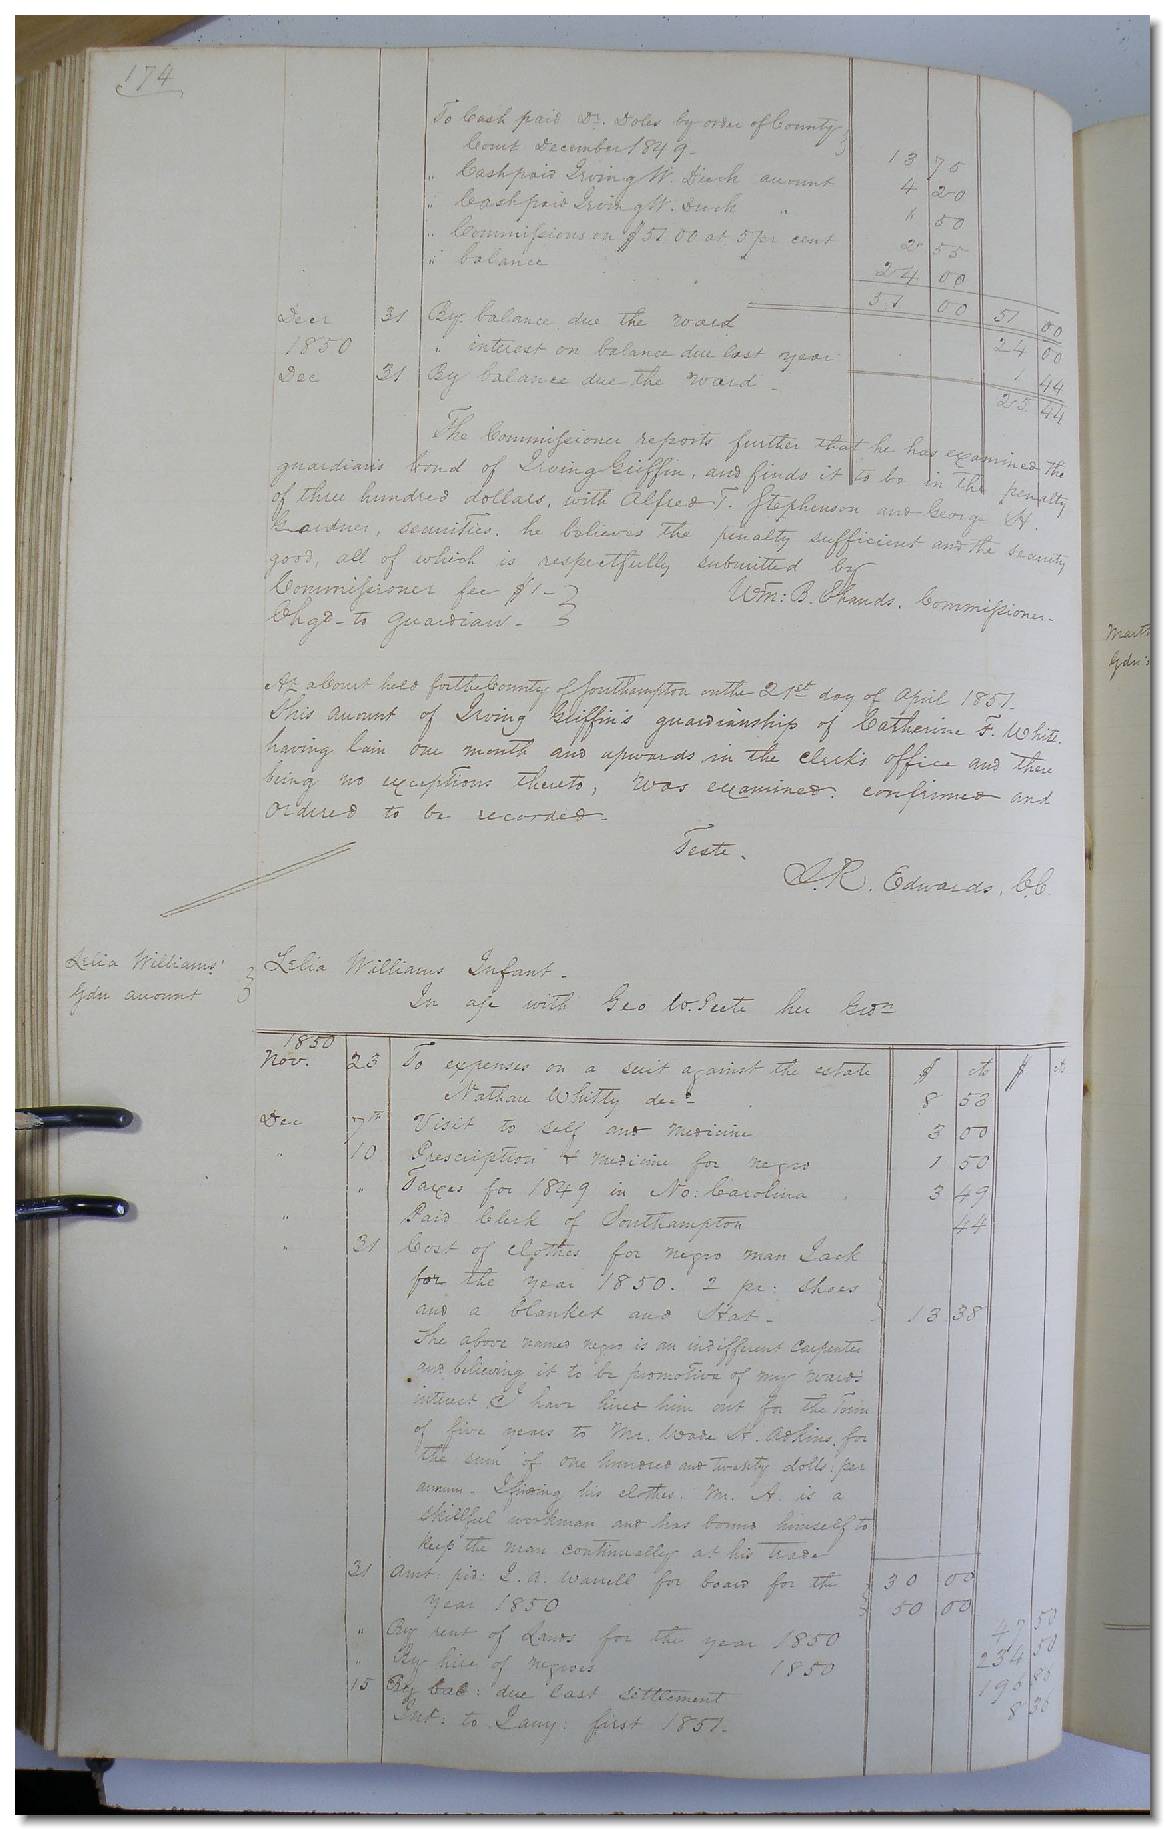 174
To Cash paid Dr. Doles by order of County
Court December 1849 - 13 75
" Cash paid Irving W. Duck account 4 20
" Cash paid Irving W. Duck " 50
" Commissions on $51 00 at 5 pr cent 2 55
" balance " 24 00
51 00 51 00
Decr 31 By balance due the ward 24 00
1850 " interest on balance due last year 1 44
Dec 31 By balance due the ward - 25 44
The Commissioner reports further that he has examined the
guardian's bond of Irving Griffin, and finds it to be in the penalty
of three hundred dollars, with Alfred T. Stephenson and George H.
Gardner, securities. he believes the penalty sufficient and the security
good, all of which is respectfully submitted by
Commissioner fee $1 - Wm: B. Shands. Commissioner.
Chgd - to guardian -
At a Court held for the County of Southampton on the 21st day of April 1851.
This account of Irving Griffin's guardianship of Catherine F. White.
having lain one month and upwards in the clerks office and there
being no exceptions thereto, was examined. confirmed and
ordered to be recorded.
Teste.
L.R. Edwards, C.C.
Lelia Williams'
Gdn account
Lelia Williams Infant -
In a/c with Geo W. Peete her Gdn
1850
Nov. 23 To expenses on a suit against the estate $ cts $ cts
Nathan Whitty decd - 8 53
Dec 7th Visit to self and medicine 3 00
" 10 Prescription & medicine for negro 1 50
" Taxes for 1849 in No: Carolina 3 49
" Paid Clerk of Southampton 44
" 31 Cost of clothes for negro man Jack
for the year 1850. 2 pr: shoes
and a blanket and Hat - 13 38
The above named negro is an indifferent carpenter
and believing it to be promotive of my wards
interest I have hired him out for the term
of five years to Mr. Wade H. Adkins. for
the sum of one hundred and twenty dolls: per
annum. I finding his clothes. Mr. A. is a
skillful workman and has bound himself to
keep the man continually at his trade
31 Amt: pd: L. A. Warrell for board for the 30 00
year 1850 50 00
" By rent of Lands for the year 1850 47 50
" By hire of negroes 1850 234 50
15 By bal: due last settlement 196 86
Int: to Jany: first 1851. 8 36